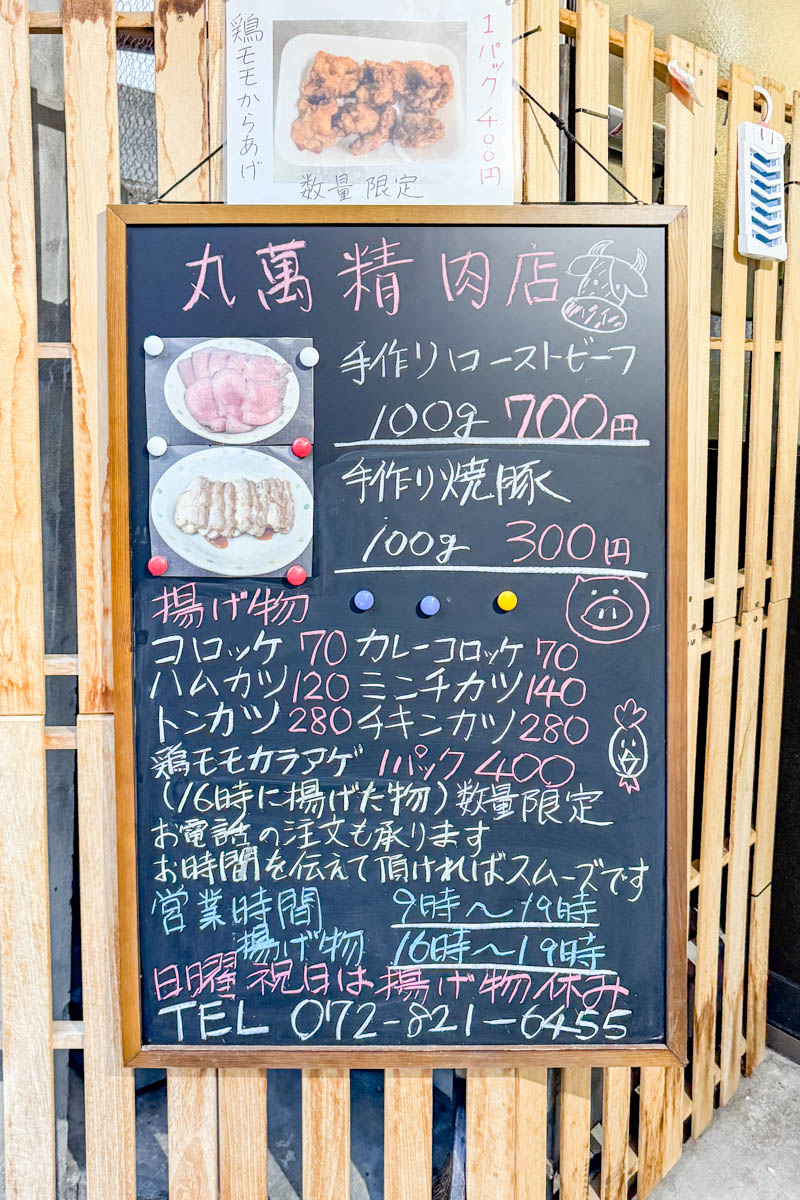 鶏モモからあげ
1パック 400円
数量限定
丸萬精肉店
手作りローストビーフ
100g 700円
手作り焼豚
100g 300円
揚げ物
コロッケ 70 カレーコロッケ 70
ハムカツ 120 ミンチカツ 140
トンカツ 280 チキンカツ 280
鶏モモカラアゲ 1パック 400
(16時に揚げた物)数量限定
お電話の注文も承ります
お時間を伝えて頂ければスムーズです
営業時間 9時〜19時
揚げ物 16時〜19時
日曜祝日は揚げ物休み
TEL 072-821-6455